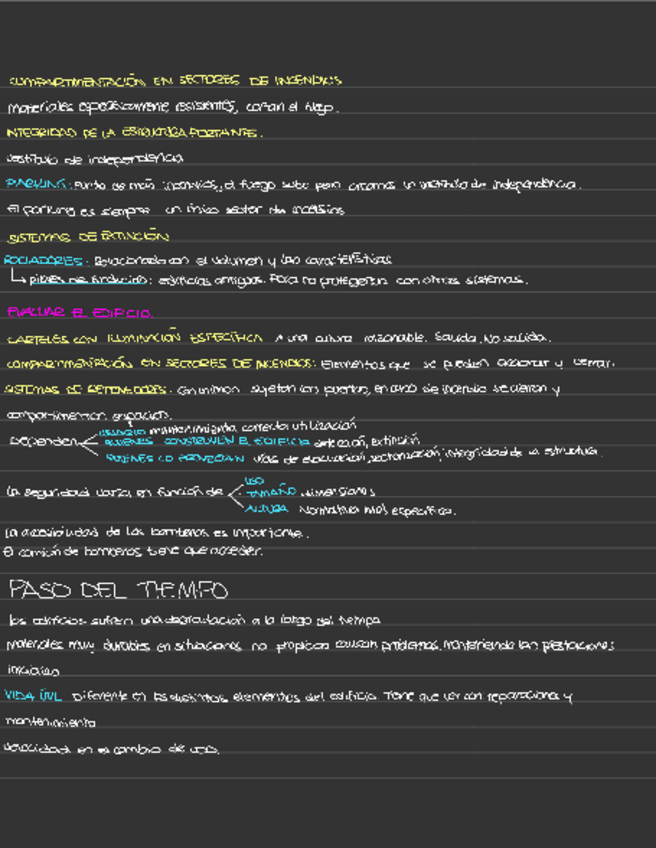 COMPARTIMENTACIÓN EN SECTORES DE INCENDIOS
materiales específicamente resistentes, cortan el fuego.
INTEGRIDAD DE LA ESTRUCTURA PORTANTE.
vestíbulo de independencia
PARKING: Punto de más incendios, el fuego sube pero creamos un vestíbulo de independencia.
El parking es siempre un único sector de incendios
SISTEMAS DE EXTINCIÓN
ROCIADORES: Relacionado con el volumen y las características
edificios antiguos. Para no protegerlos con otros sistemas.
EVALUAR EL EDIFICIO.
CARTELES CON ILUMINACIÓN ESPECÍFICA A una altura razonable. Salida. No salida.
COMPARTIMENTACIÓN EN SECTORES DE INCENDIOS: Elementos que se pueden accionar y cerrar.
SISTEMAS DE RETENEDORES: Con imanes sujetan las puertas, en caso de incendio se cierran y
compartimentan espacios.
USUARIO mantenimiento correcta utilización
Dependen QUIENES CONSTRUYEN EL EDIFICIO detección, extinción
QUIENES LO PROYECTAN vías de evacuación, sectorización, integridad de la estructura.
USO
La seguridad varía en función de TAMAÑO dimensiones
ALTURA Normativa más específica.
La accesibilidad de los bomberos es importante.
El camión de bomberos tiene que acceder.
PASO DEL TIEMPO
Los edificios sufren una degradación a lo largo del tiempo
materiales muy durables en situaciones no propicias causan problemas, manteniendo las prestaciones
iniciales
VIDA ÚTIL Diferente en los distintos elementos del edificio. Tiene que ver con reparaciones y
mantenimiento
velocidad en el cambio de uso.